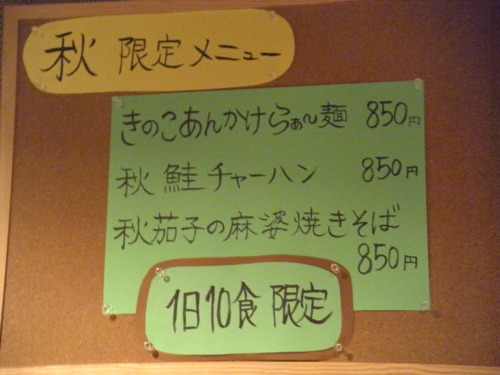 秋 限定メニュー
きのこあんかけらぁ〜麺 850円
秋鮭チャーハン 850円
秋茄子の麻婆焼きそば
850円
1日10食 限定